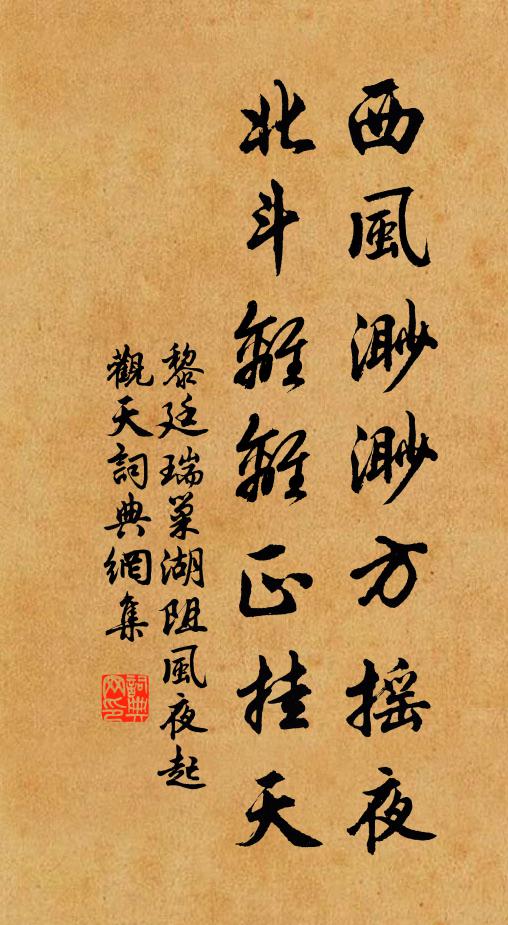 西風渺渺方摇夜
北斗離離正挂天
黎廷瑞巢湖阻風夜起
觀天詞典網集
詞典网印